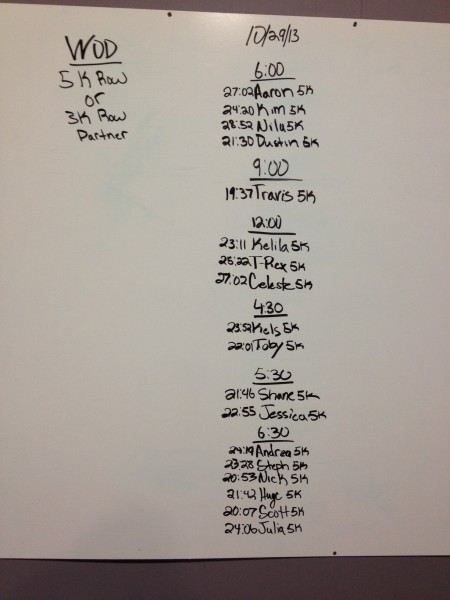 WOD
5K Row
or
3K Row
Partner
10/29/13
6:00
27:02 Aaron 5K
24:20 Kim 5K
28:52 Nilu 5K
21:30 Dustin 5K
9:00
19:37 Travis 5K
12:00
23:11 Kelila 5K
25:22 T-Rex 5K
27:02 Celeste 5K
4:30
23:59 Kels 5K
22:01 Toby 5K
5:30
21:46 Shane 5K
22:55 Jessica 5K
6:30
24:19 Andrea 5K
23:28 Steph 5K
20:53 Nick 5K
21:42 Huge 5K
20:07 Scott 5K
24:06 Julia 5K